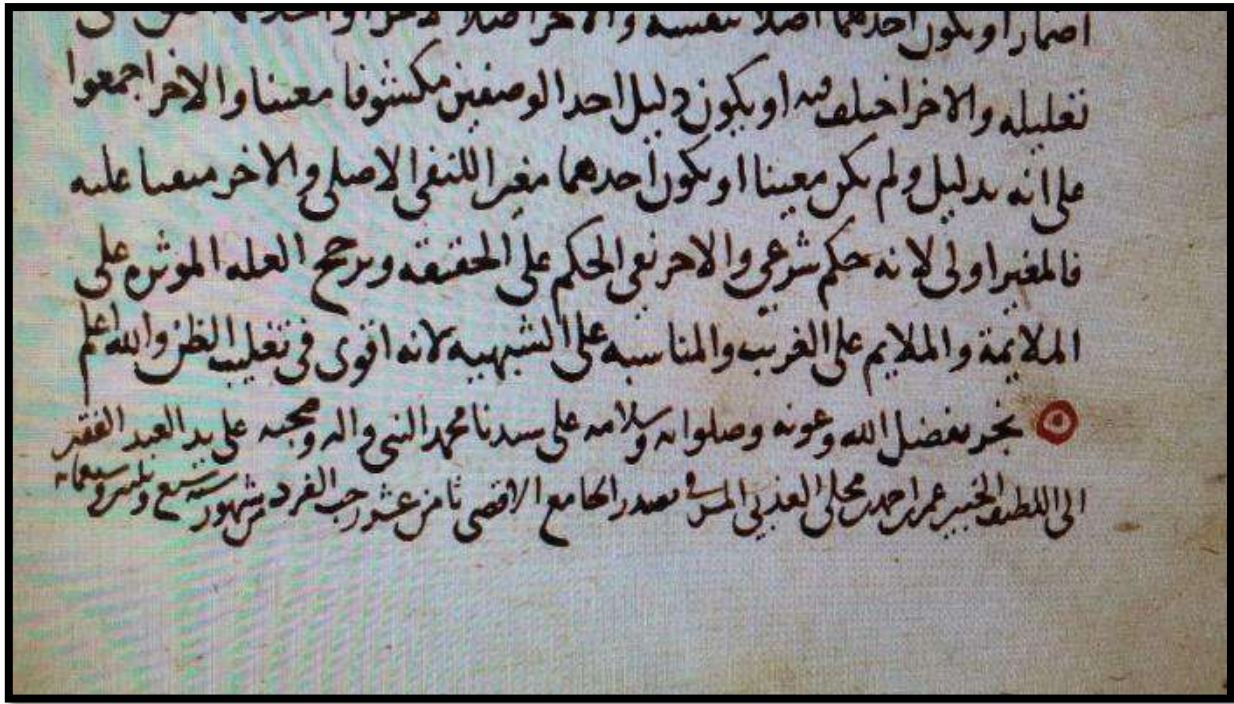 اضمارا او يكون احدهما اصلا بنفسه والاخر اصلا لاخر او احدهما اتفق في
تعليله والاخر اختلف فيه او يكون دليل احد الوصفين مكشوفا معينا والاخر اجمعوا
على انه بدليل ولم يكن معينا او يكون احدهما مغيرا للنفي الاصلي والاخر مبقيا عليه
فالمغير اولى لانه حكم شرعي والاخر نفي الحكم على الحقيقه ويرجح العله الموثره على
الملايمة والملايم على الغريب والمناسبه على الشبهيه لانه اقوى في تغليب الظن والله اعلم
نجز بفضل الله وعونه وصلواته وسلامه على سيدنا محمد النبي واله وصحبه على يد العبد الفقير
الى اللطيف الخبير عمر بن احمد بن محلى بصدر الجامع الاقصى ثامن عشر رجب الفرد من شهور سنة تسع وثلثين وسبعمائة